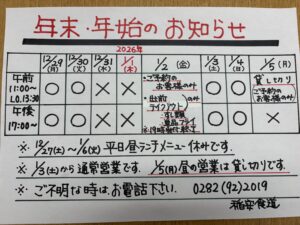 年末・年始のお知らせ
2026年
12/29(月) 12/30(火) 12/31(水) 1/1(木) 1/2(金) 1/3(土) 1/4(日) 1/5(月)
午前 11:00〜 L.O.13:30 ○ ○ × × ・ご予約のお客様のみ ○ ○ 貸し切り
午後 17:00〜 ○ ○ × × テイクアウト ○ ○ ご予約のお客様のみ
※ 12/27(土)〜1/6(火) 平日昼ランチメニュー休みです。
※ 1/3(土)から通常営業です。 1/5(月)昼の営業は貸し切りです。
※ ご不明な時は、お電話下さい。 0282(92)2019